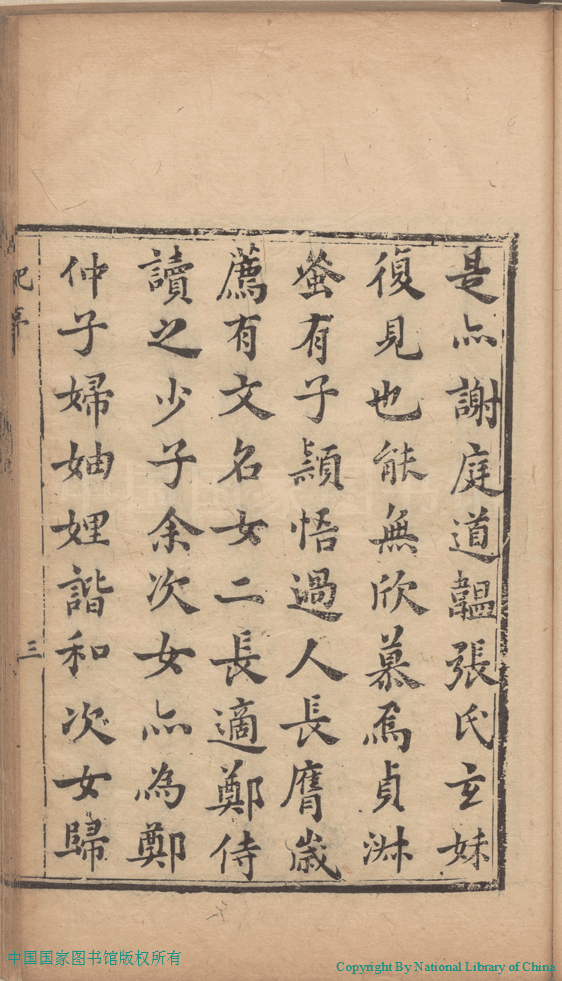 是亦謝庭道韞張氏玄妹
復見也能無欣慕焉貞淋
蚤有子頴悟過人長膺歲
薦有文名女二長適鄭侍
讀之少子余次女亦為鄭
仲子婦妯娌諧和次女歸
三
中国国家图书馆版权所有
Copyright By National Library of China